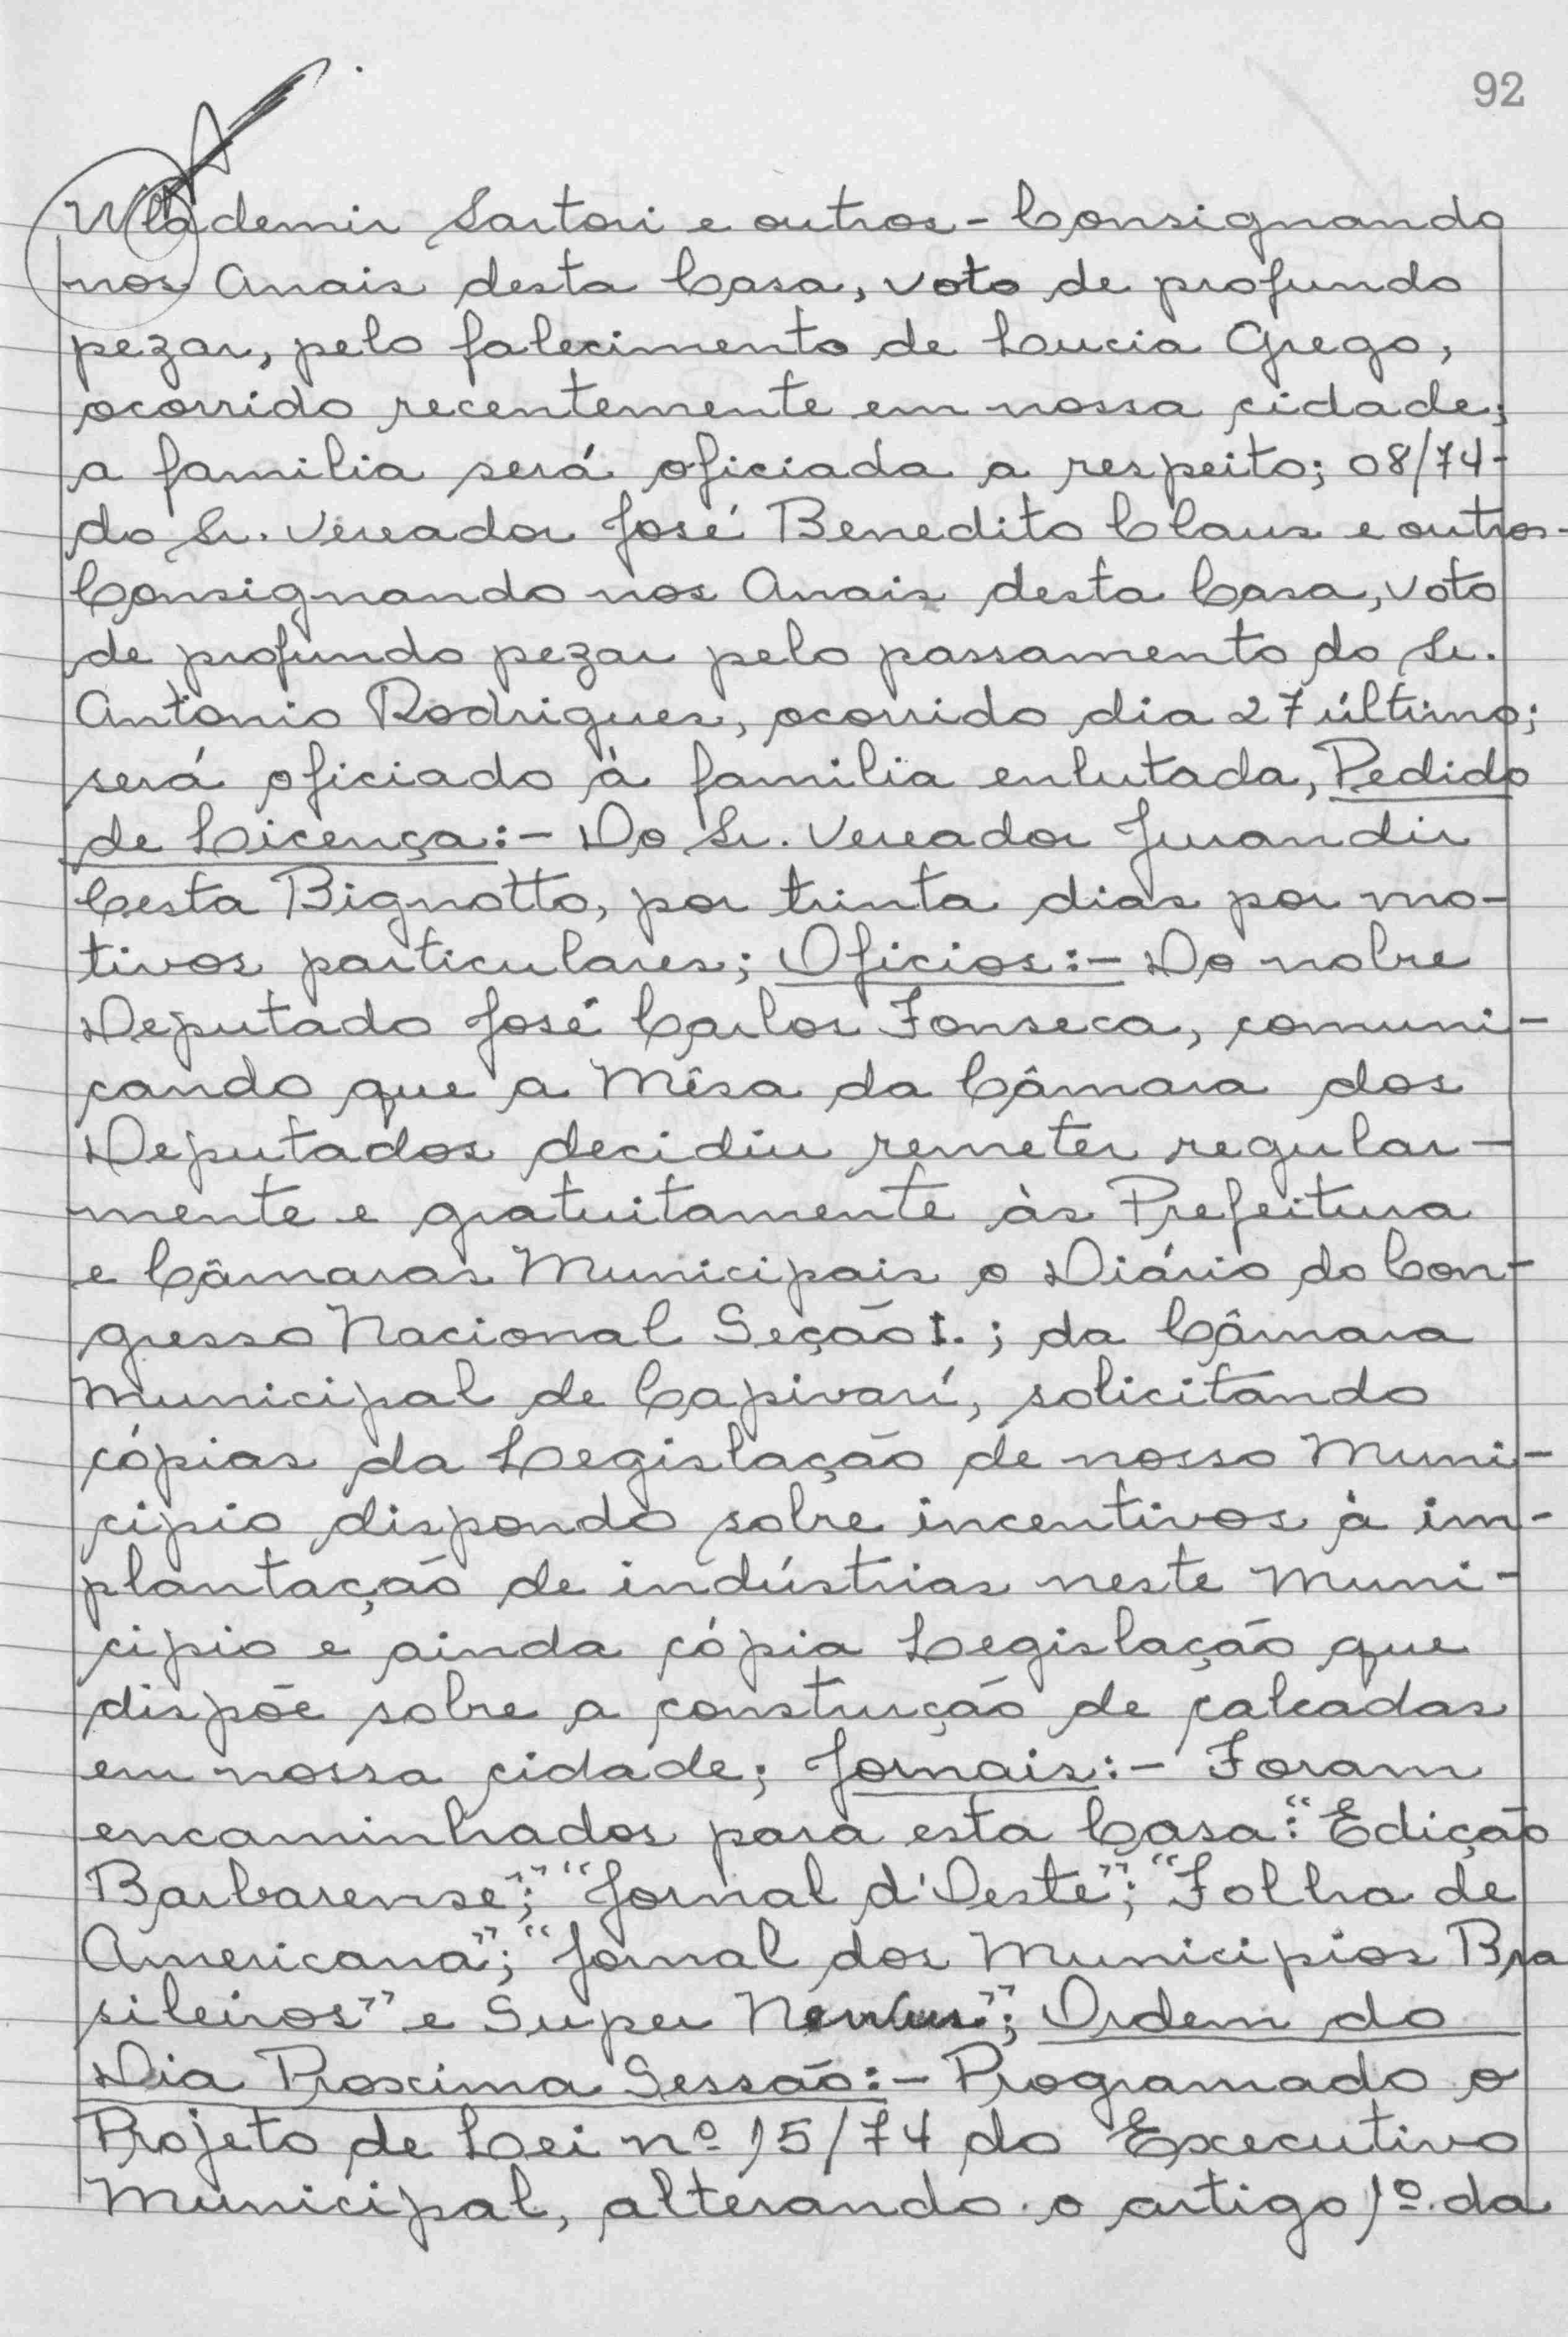 92
Wlademir Sartori e outros - Consignando
nos Anais desta Casa, voto de profundo
pezar, pelo falecimento de Lucia Grego,
ocorrido recentemente em nossa cidade;
a familia será oficiada a respeito; 08/74-
do Sr. Vereador José Benedito Claus e outros-
Consignando nos Anais desta Casa, voto
de profundo pezar pelo passamento do Sr.
Antonio Rodrigues, ocorrido dia 27 último;
será oficiado à familia enlutada, Pedido
de Licença:- Do Sr. Vereador Jurandir
Cesta Bignotto, por trinta dias por mo-
tivos particulares; Oficios:- Do nobre
Deputado José Carlos Fonseca, comuni-
cando que a Mêsa da Câmara dos
Deputados decidiu remeter regular-
mente e gratuitamente às Prefeitura
e Câmaras Municipais o Diário do Con-
gresso Nacional Seção I.; da Câmara
Municipal de Capivarí, solicitando
cópias da Legislação de nosso Muni-
cipio dispondo sobre incentivos à im-
plantação de indústrias neste Muni-
cipio e ainda cópia Legislação que
dispõe sobre a construção de calcadas
em nossa cidade; Jornais:- Foram
encaminhados para esta Casa: "Edição
Barbarense"; "Jornal d'Oeste"; "Folha de
Americana"; "Jornal dos Municipios Bra
sileiros" e Super "; Ordem do
Dia Proxima Sessão:- Programado o
Projeto de Lei nº 15/74 do Executivo
Municipal, alterando o artigo 1º da